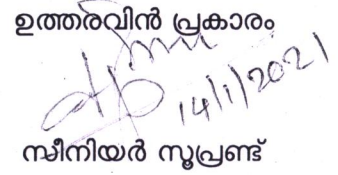 ഉത്തരവിൻ പ്രകാരം
14/1/2021
സീനിയർ സൂപ്രണ്ട്